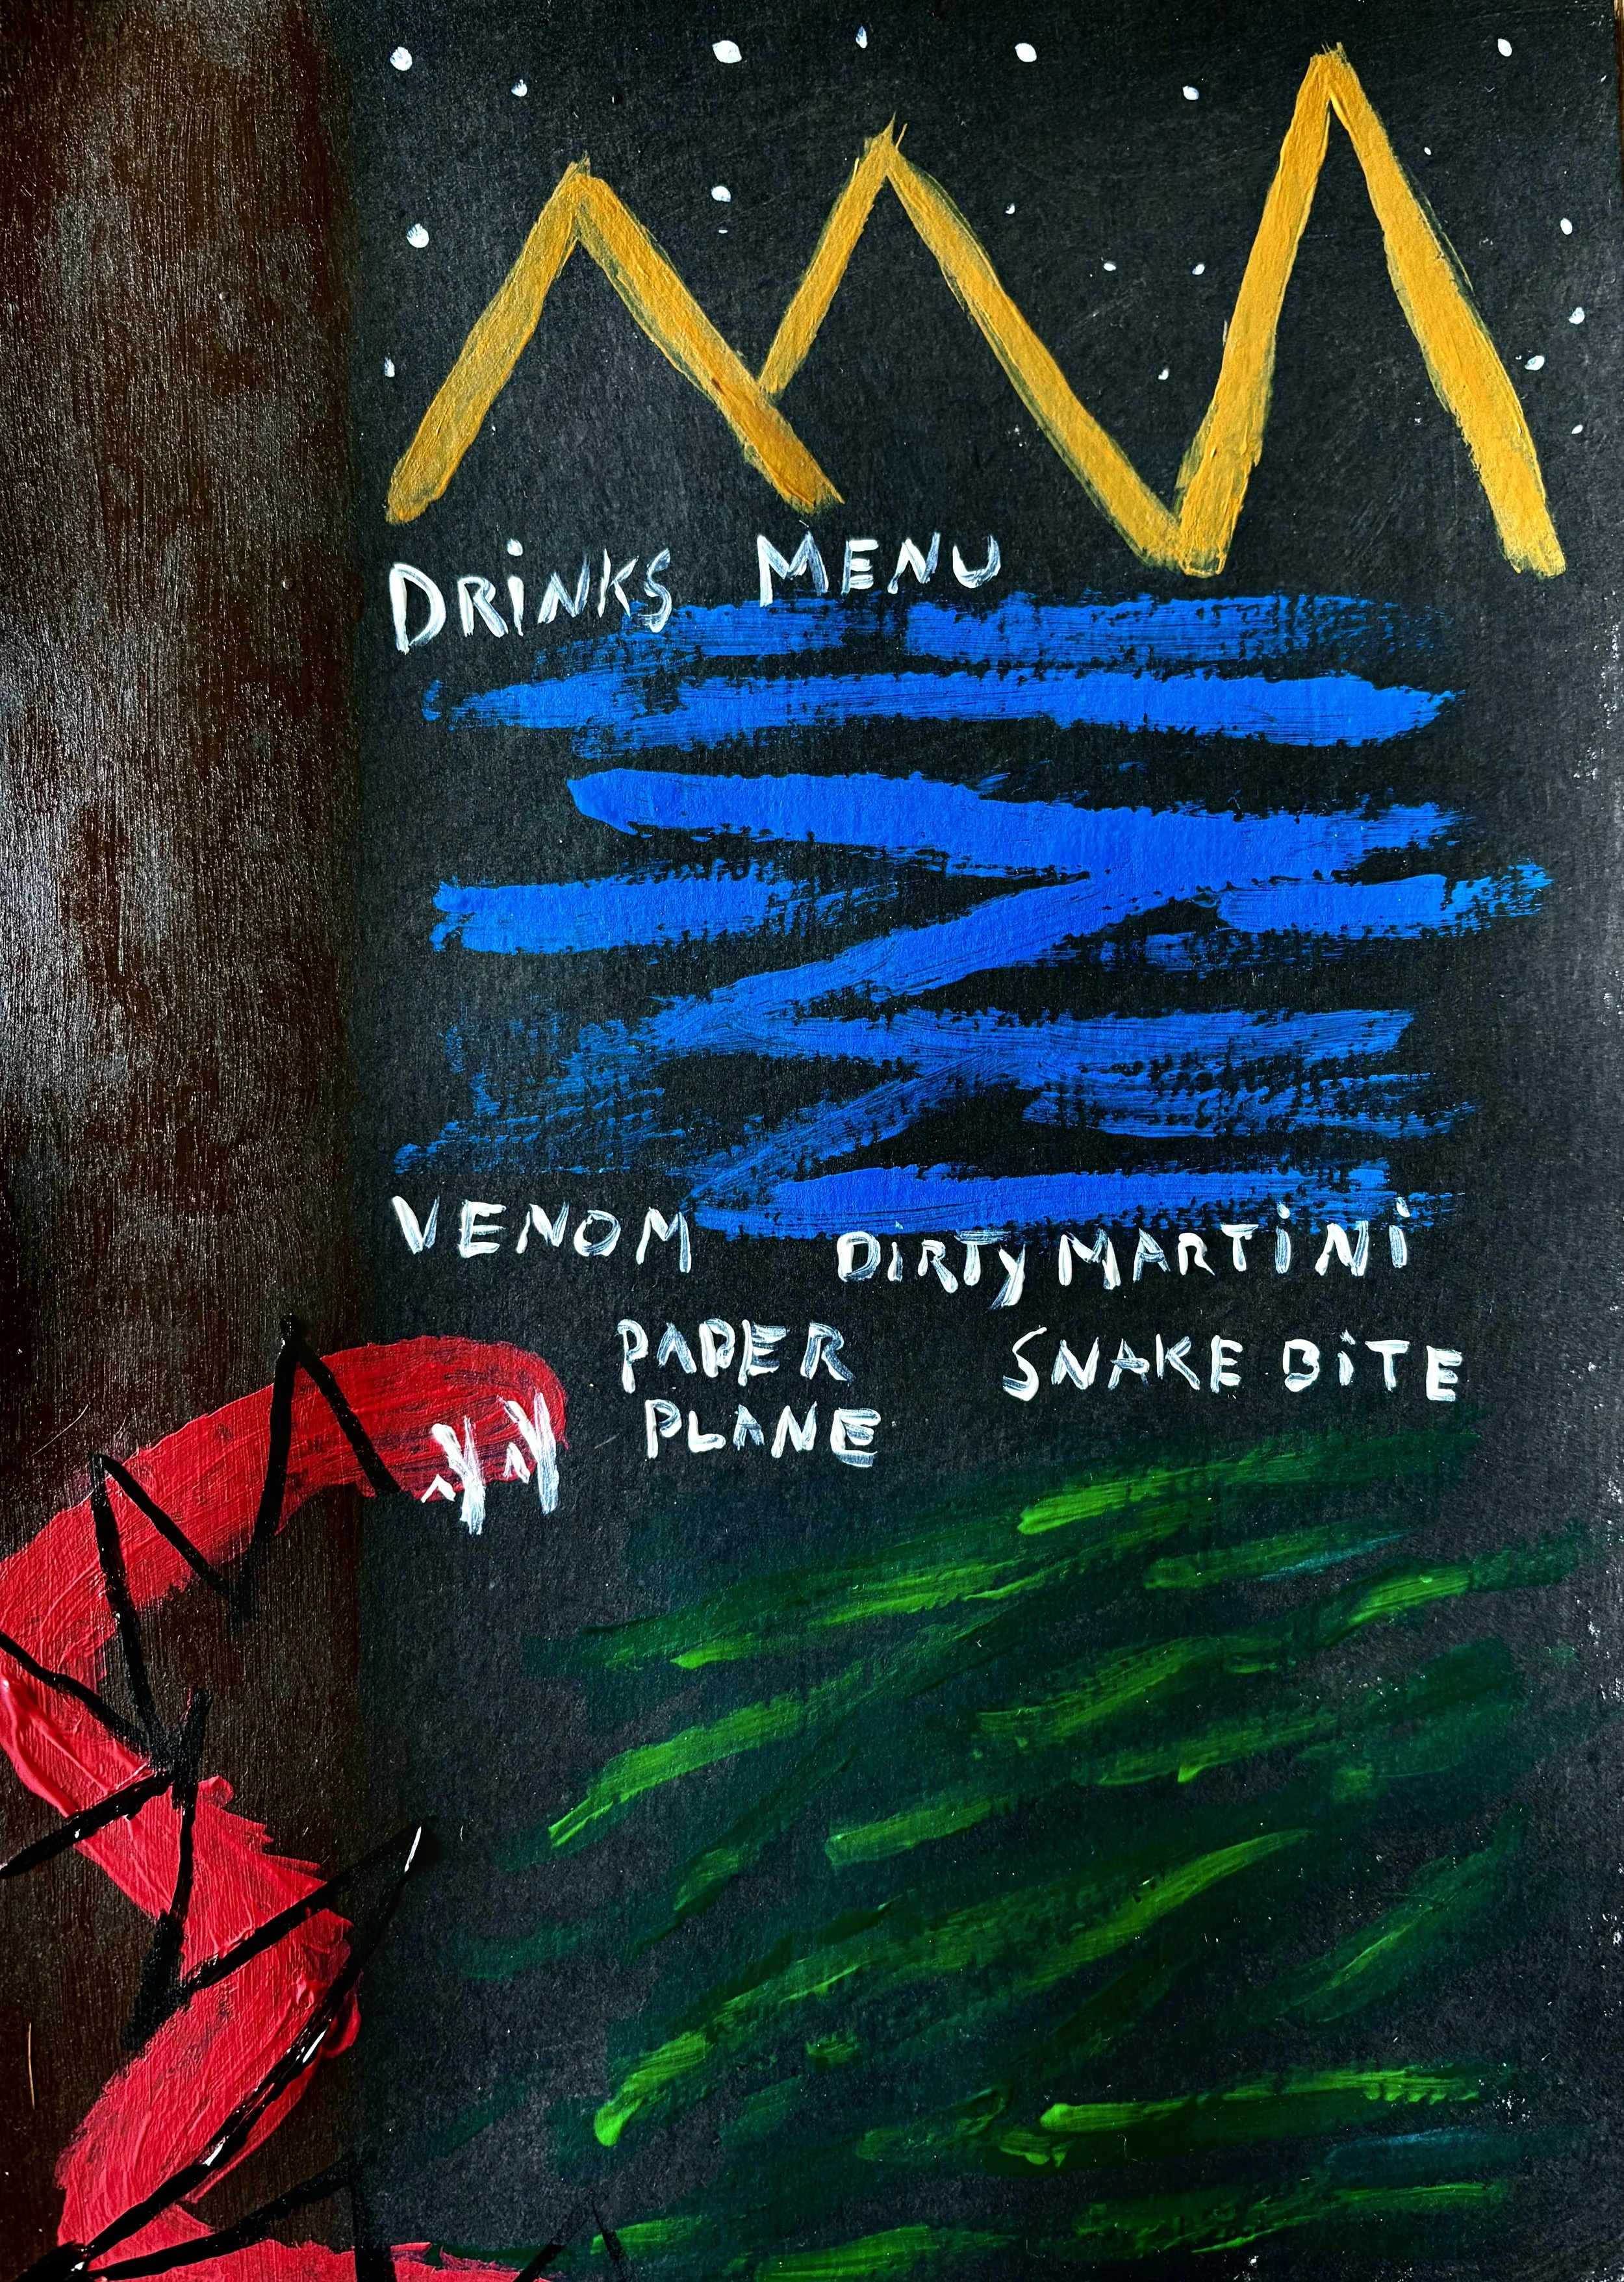 DRiNKS MENU
VENOM DiRTy MARTiNi
PAPER SNAKE BiTE
PLANE